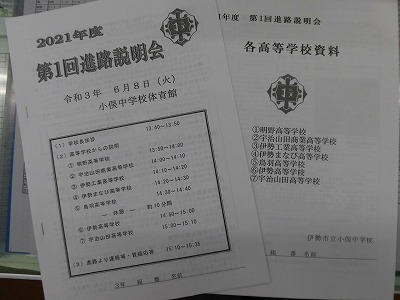 2021年度
第1回進路説明会
令和3年 6月8日(火)
小俣中学校体育館
(1) 学校長挨拶 13:40~13:50
(2) 高等学校からの説明
① 明野高等学校 13:50~14:00
② 宇治山田商業高等学校 14:00~14:10
③ 伊勢工業高等学校 14:10~14:20
④ 伊勢まなび高等学校 14:20~14:30
⑤ 鳥羽高等学校 14:30~14:40
― 休憩 ― 約10分間
⑥ 伊勢高等学校 14:50~15:00
⑦ 宇治山田高等学校 15:00~15:10
(3) 進路より連絡等・質疑応答 15:10~15:35
3年 組 番 名前
年度 第1回進路説明会
各高等学校資料
①明野高等学校
②宇治山田商業高等学校
③伊勢工業高等学校
④伊勢まなび高等学校
⑤鳥羽高等学校
⑥伊勢高等学校
⑦宇治山田高等学校
伊勢市立小俣中学校
組 番 名前